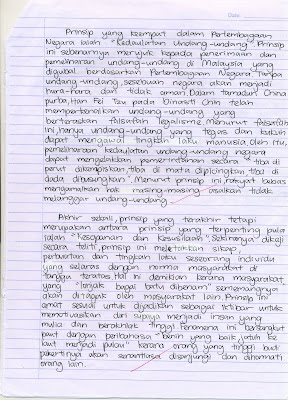 Date:
Prinsip yang keempat dalam Perlembagaan
Negara ialah "Kedaulatan Undang-undang". Prinsip
ini sebenarnya merujuk kepada penerimaan dan
pematuhan undang-undang di Malaysia yang
digubal berdasarkan Perlembagaan Negara. Tanpa
undang-undang, sesebuah negara akan menjadi
huru-hara dan tidak aman. Dalam tamadun China
purba, Han Fei Tzu pada Dinasti Chin telah
memperkenalkan undang-undang yang
berteraskan falsafah legalisme. Menurut falsafah
ini, hanya undang-undang yang tegas dan kukuh
dapat mengawal tingkah laku manusia. Oleh itu,
pemeliharaan kedaulatan undang-undang negara
dapat mengelakkan pemerintahan secara "tiba di
perut dikempiskan, tiba di mata dipicingkan, tiba di
dada dibusungkan". Menurut prinsip ini, rakyat bebas
mengamalkan hak masing-masing asalkan tidak
melanggar undang-undang.
Akhir sekali, prinsip yang terakhir tetapi
merupakan antara prinsip yang terpenting pula
ialah "Kesopanan dan Kesusilaan". Sekiranya dikaji
secara teliti, prinsip ini meletakkan sikap
pertuturan dan tingkah laku seseorang individu
yang selaras dengan norma masyarakat di
tangga teratas. Hal ini demikian kerana masyarakat
yang "lonjak bagai batu dibenam" sememangnya
akan ditolak oleh masyarakat lain. Prinsip ini
amat sesuai untuk dijadikan sebagai iktibar untuk
memotivasikan diri supaya menjadi insan yang
mulia dan berakhlak tinggi. Fenomena ini bersangkut
paut dengan peribahasa "benih yang baik, jatuh ke
laut menjadi pulau" kerana orang yang tinggi budi
pekertinya akan senantiasa disanjungi dan dihormati
orang lain.